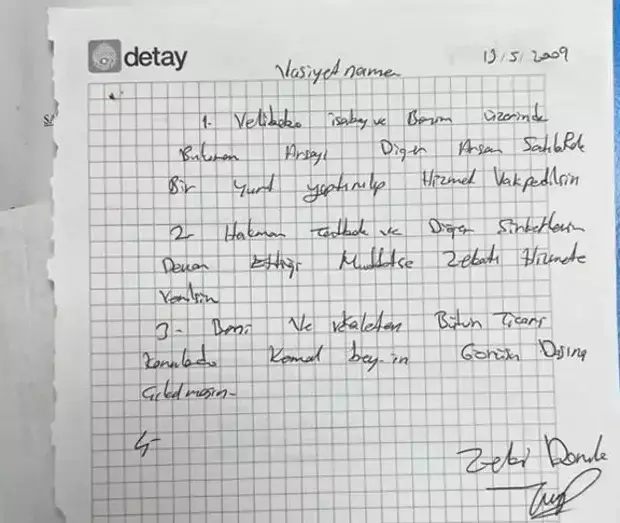 detay
19/5/2009
Vasiyetname
1. Velibaba isabey ve Benim üzerinde
Bulunan Arsayı Diğer Arsan Sahibde
Bir yurt yaptırılıp Hizmet Vakfedilsin
2- Hakman ve Diğer Şirketlerin
Devam Ettiği Müddetçe Zekatı Hizmete
Verilsin
3- Beni Ve vekaleten Bütün Ticari
Konularda Kemal bey-in Görüşü Dışına
Çıkılmasın-
4-
Zeki